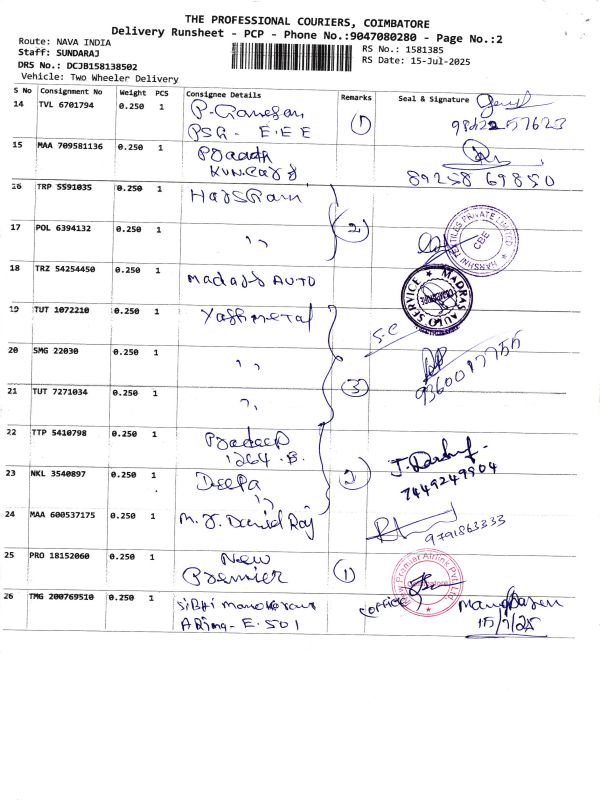 THE PROFESSIONAL COURIERS, COIMBATORE
Delivery Runsheet - PCP - Phone No.:9047080280 - Page No.:2
Route: NAVA INDIA
Staff: SUNDARAJ
DRS No.: DCJB158138502
Vehicle: Two Wheeler Delivery
RS No.: 1581385
RS Date: 15-Jul-2025
S No Consignment No Weight PCS Consignee Details Remarks Seal & Signature
14 TVL 6701794 0.250 1 P. Ganesan
PSG - E.E.E 1
15 MAA 709581136 0.250 1
89258 69850
16 TRP 5591035 0.250 1 HarsRam
17 POL 6394132 0.250 1 ,, 2
HARSHNI TEXTILES PRIVATE LIMITED
CBE
18 TRZ 54254450 0.250 1 Madras AUTO
MADRAS AUTO SERVICE
19 TUT 1072210 0.250 1 Yashmetal
S.C
20 SMG 22030 0.250 1 ,,
21 TUT 7271034 0.250 1 ,, 3
22 TTP 5410798 0.250 1 Pradeep
1264. B.
23 NKL 3540897 0.250 1 Deepa
,, 2
7449249904
24 MAA 600537175 0.250 1 M. J. Daniel Raj
9791863333
25 PRO 18152060 0.250 1 New
Premier 1
New Premier Airlink Pvt. Ltd
26 TMG 200769510 0.250 1 Sibhi Manoharan
E. 501
office
15/7/25